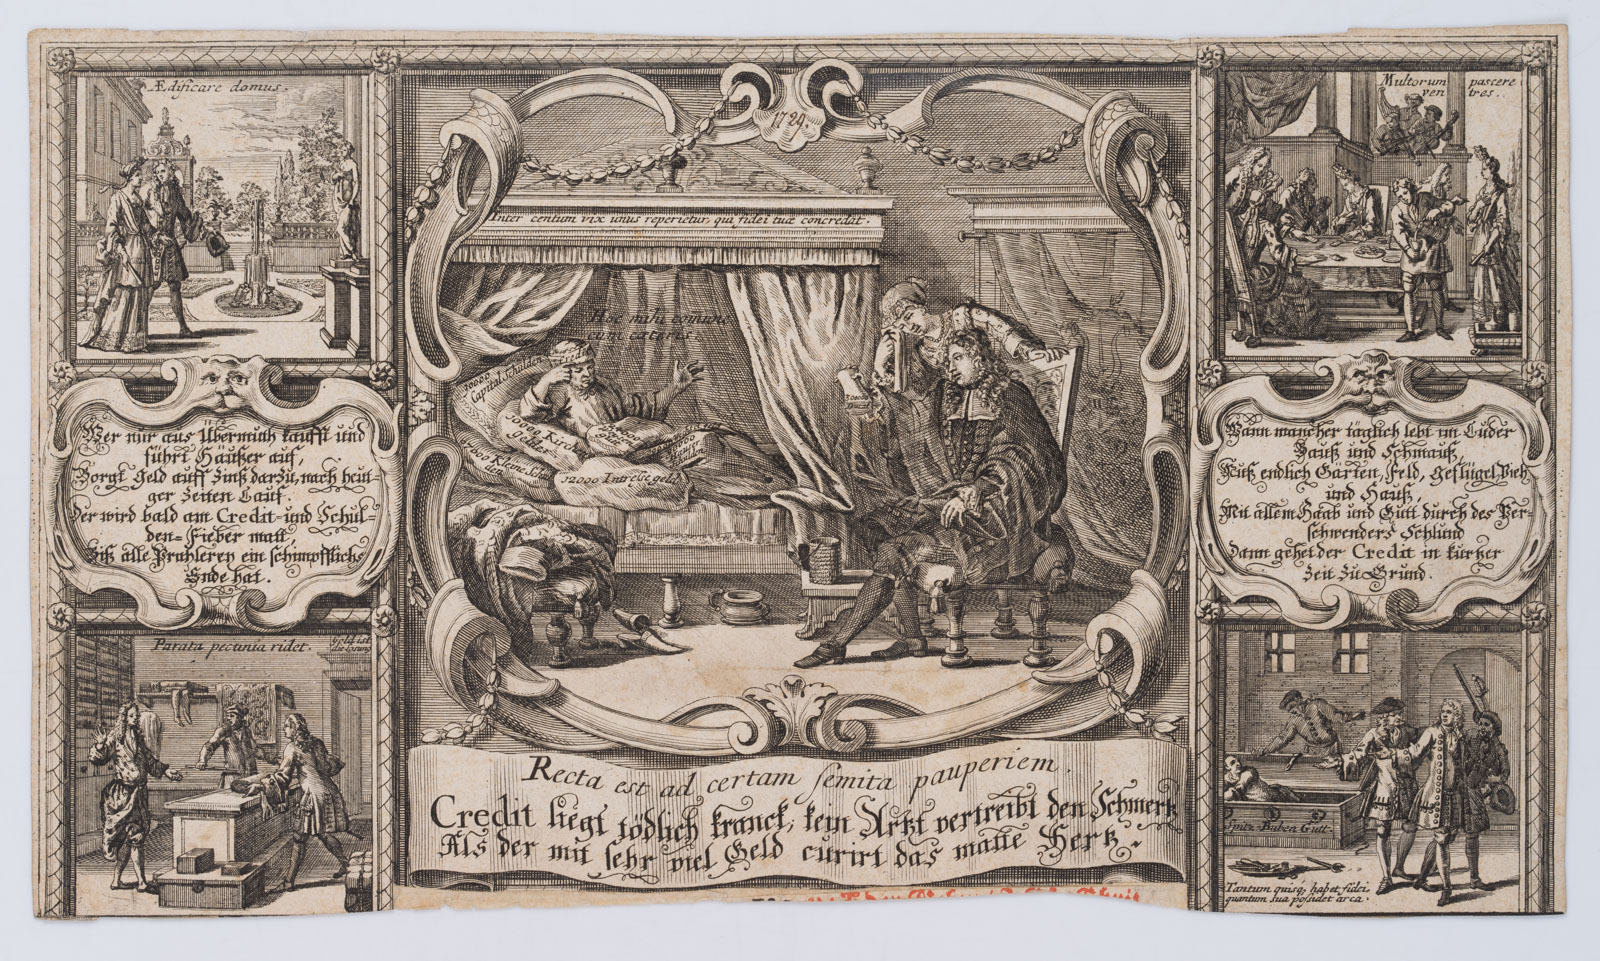 Ædificare domus.
1724.
Multorum pascere
ven tres.
Inter centum vix unus reperietur, qui fidei tuæ concredat.
Hoc mihi comune
cum cateris.
Capital schulden
geldes
7000 Kleine Schul
den
12000 Intresse geld
Wer nur aus Übermuth kaufft und
führt Häußer auf,
Borgt Geld auff Zinß darzu, nach heut-
ger Zeiten Lauf.
Der wird bald am Credit- und Schul-
den-Fieber matt,
Biß alle Prahlerey ein schimpfflichs
Ende hat.
Wann mancher täglich lebt im Luder
Sauß und Schmauß,
Frist endlich Gärten, Feld, Geflügel, Vieh
und Hauß,
Mit allem Haab und Gutt durch des Ver-
schwenders Schlund
Dann gehet der Credit in kurtzer
Zeit zu Grund.
Parata pecunia ridet.
Geld ist
die losung
Spitz Buben Gutt.
Tantum quisq, habet fidei
quantum sua possidet arca.
Recta est ad certam semita pauperiem.
Credit liegt tödlich kranck, kein Artzt vertreibt den Schmertz
Als der mit sehr viel Geld curirt das matte Hertz.